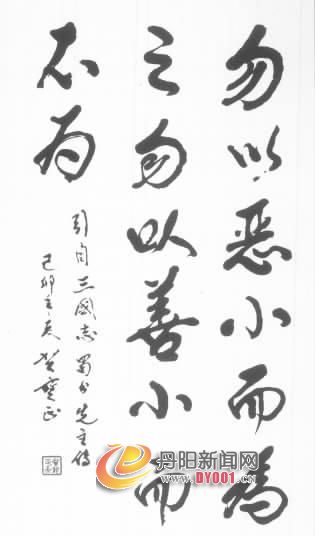 勿以恶小而為
之勿以善小而
不为
引自三國志蜀书先主傳
己卯之夏贺宝正
丹阳新闻网
WWW.DY001.CN